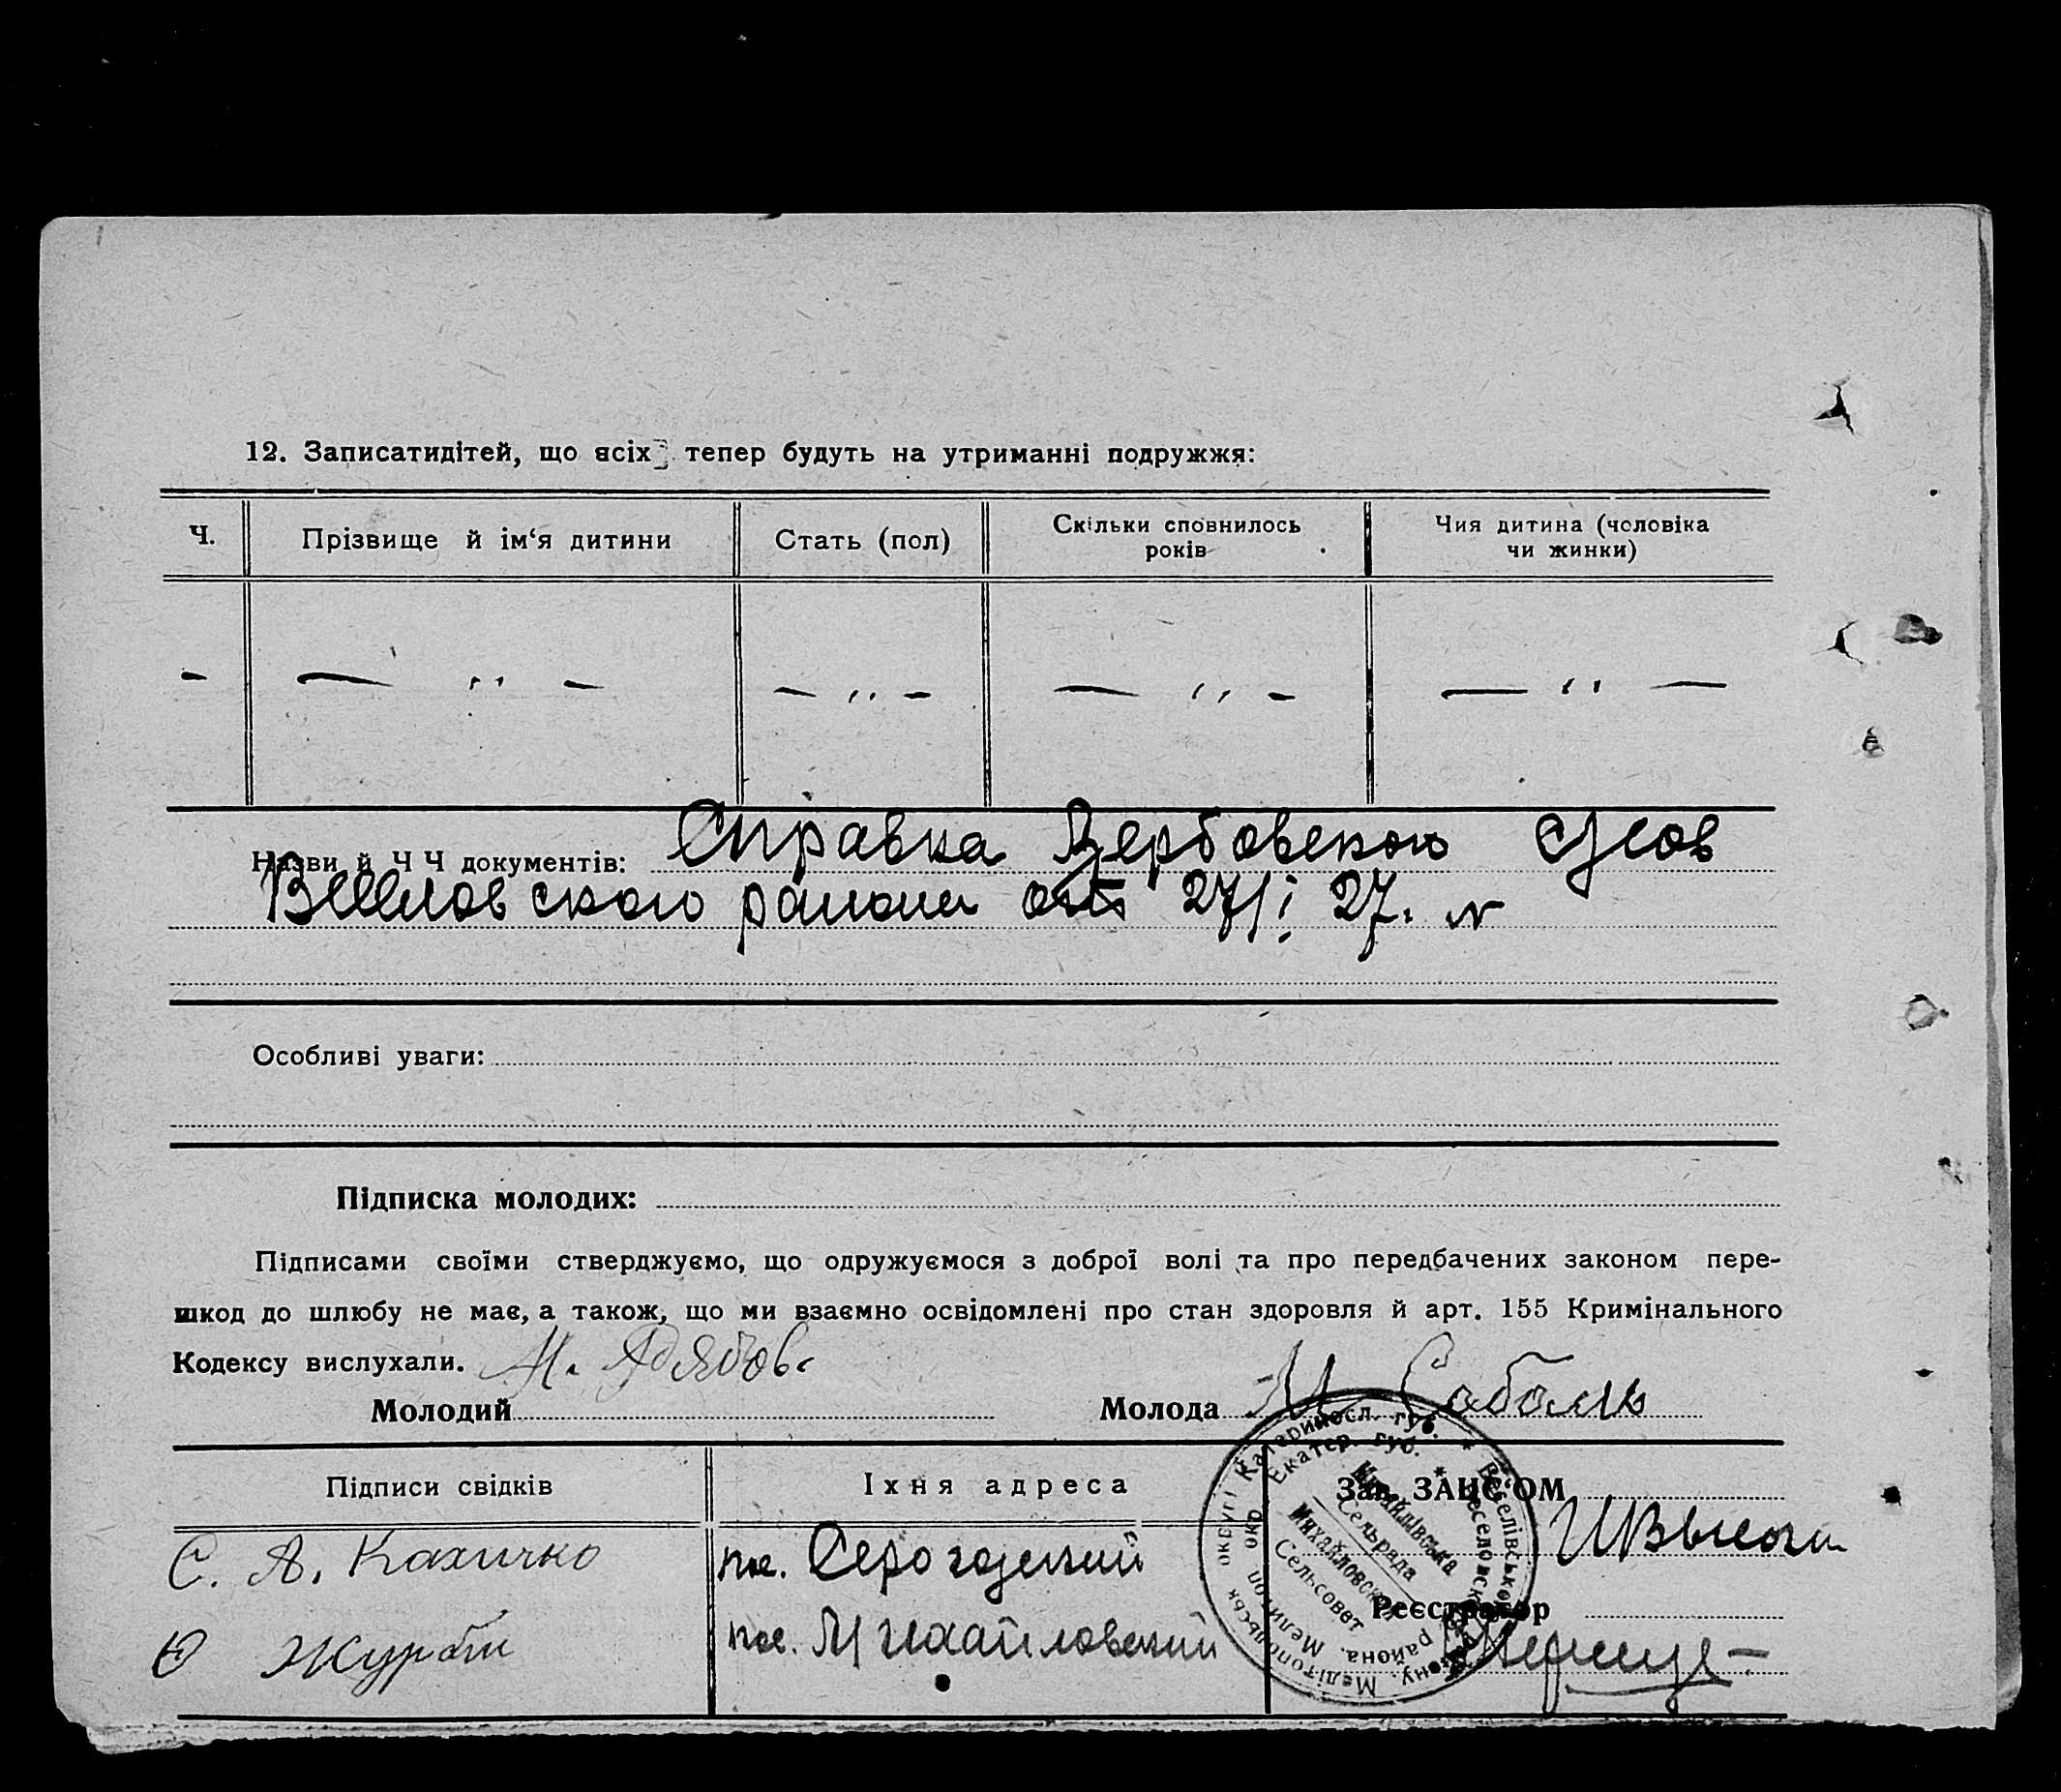 12. Записатидітей, що всіх тепер будуть на утриманні подружжя:
Ч. Прізвище й ім‘я дитини Стать (пол) Скільки сповнилось років Чия дитина (чоловіка чи жинки)
— — „ — — „ — — „ — — „ —
Назви й Ч Ч документів: Справка Вербовского
района от 27/I 27.
Особливі уваги:
Підписка молодих:
Підписами своїми стверджуємо, що одружуємося з доброї волі та про передбачених законом пере-
шкод до шлюбу не має, а також, що ми взаємно освідомлені про стан здоровля й арт. 155 Кримінального
Кодексу вислухали.
Молодий Молода М Соболь
Підписи свідків Їхня адреса Зав. ЗАГС‘ОМ
С. А. Кахичко пос. Серогозский
Реєстратор
Журба пос. Михайловский
Катериносл. губ. * Веселівського району. Мелітопольськ округі
Екатер. губ. * Веселовского района. Мелитоп окр.
Михайлівська
Сельрада
Михайловский
Сельсовет